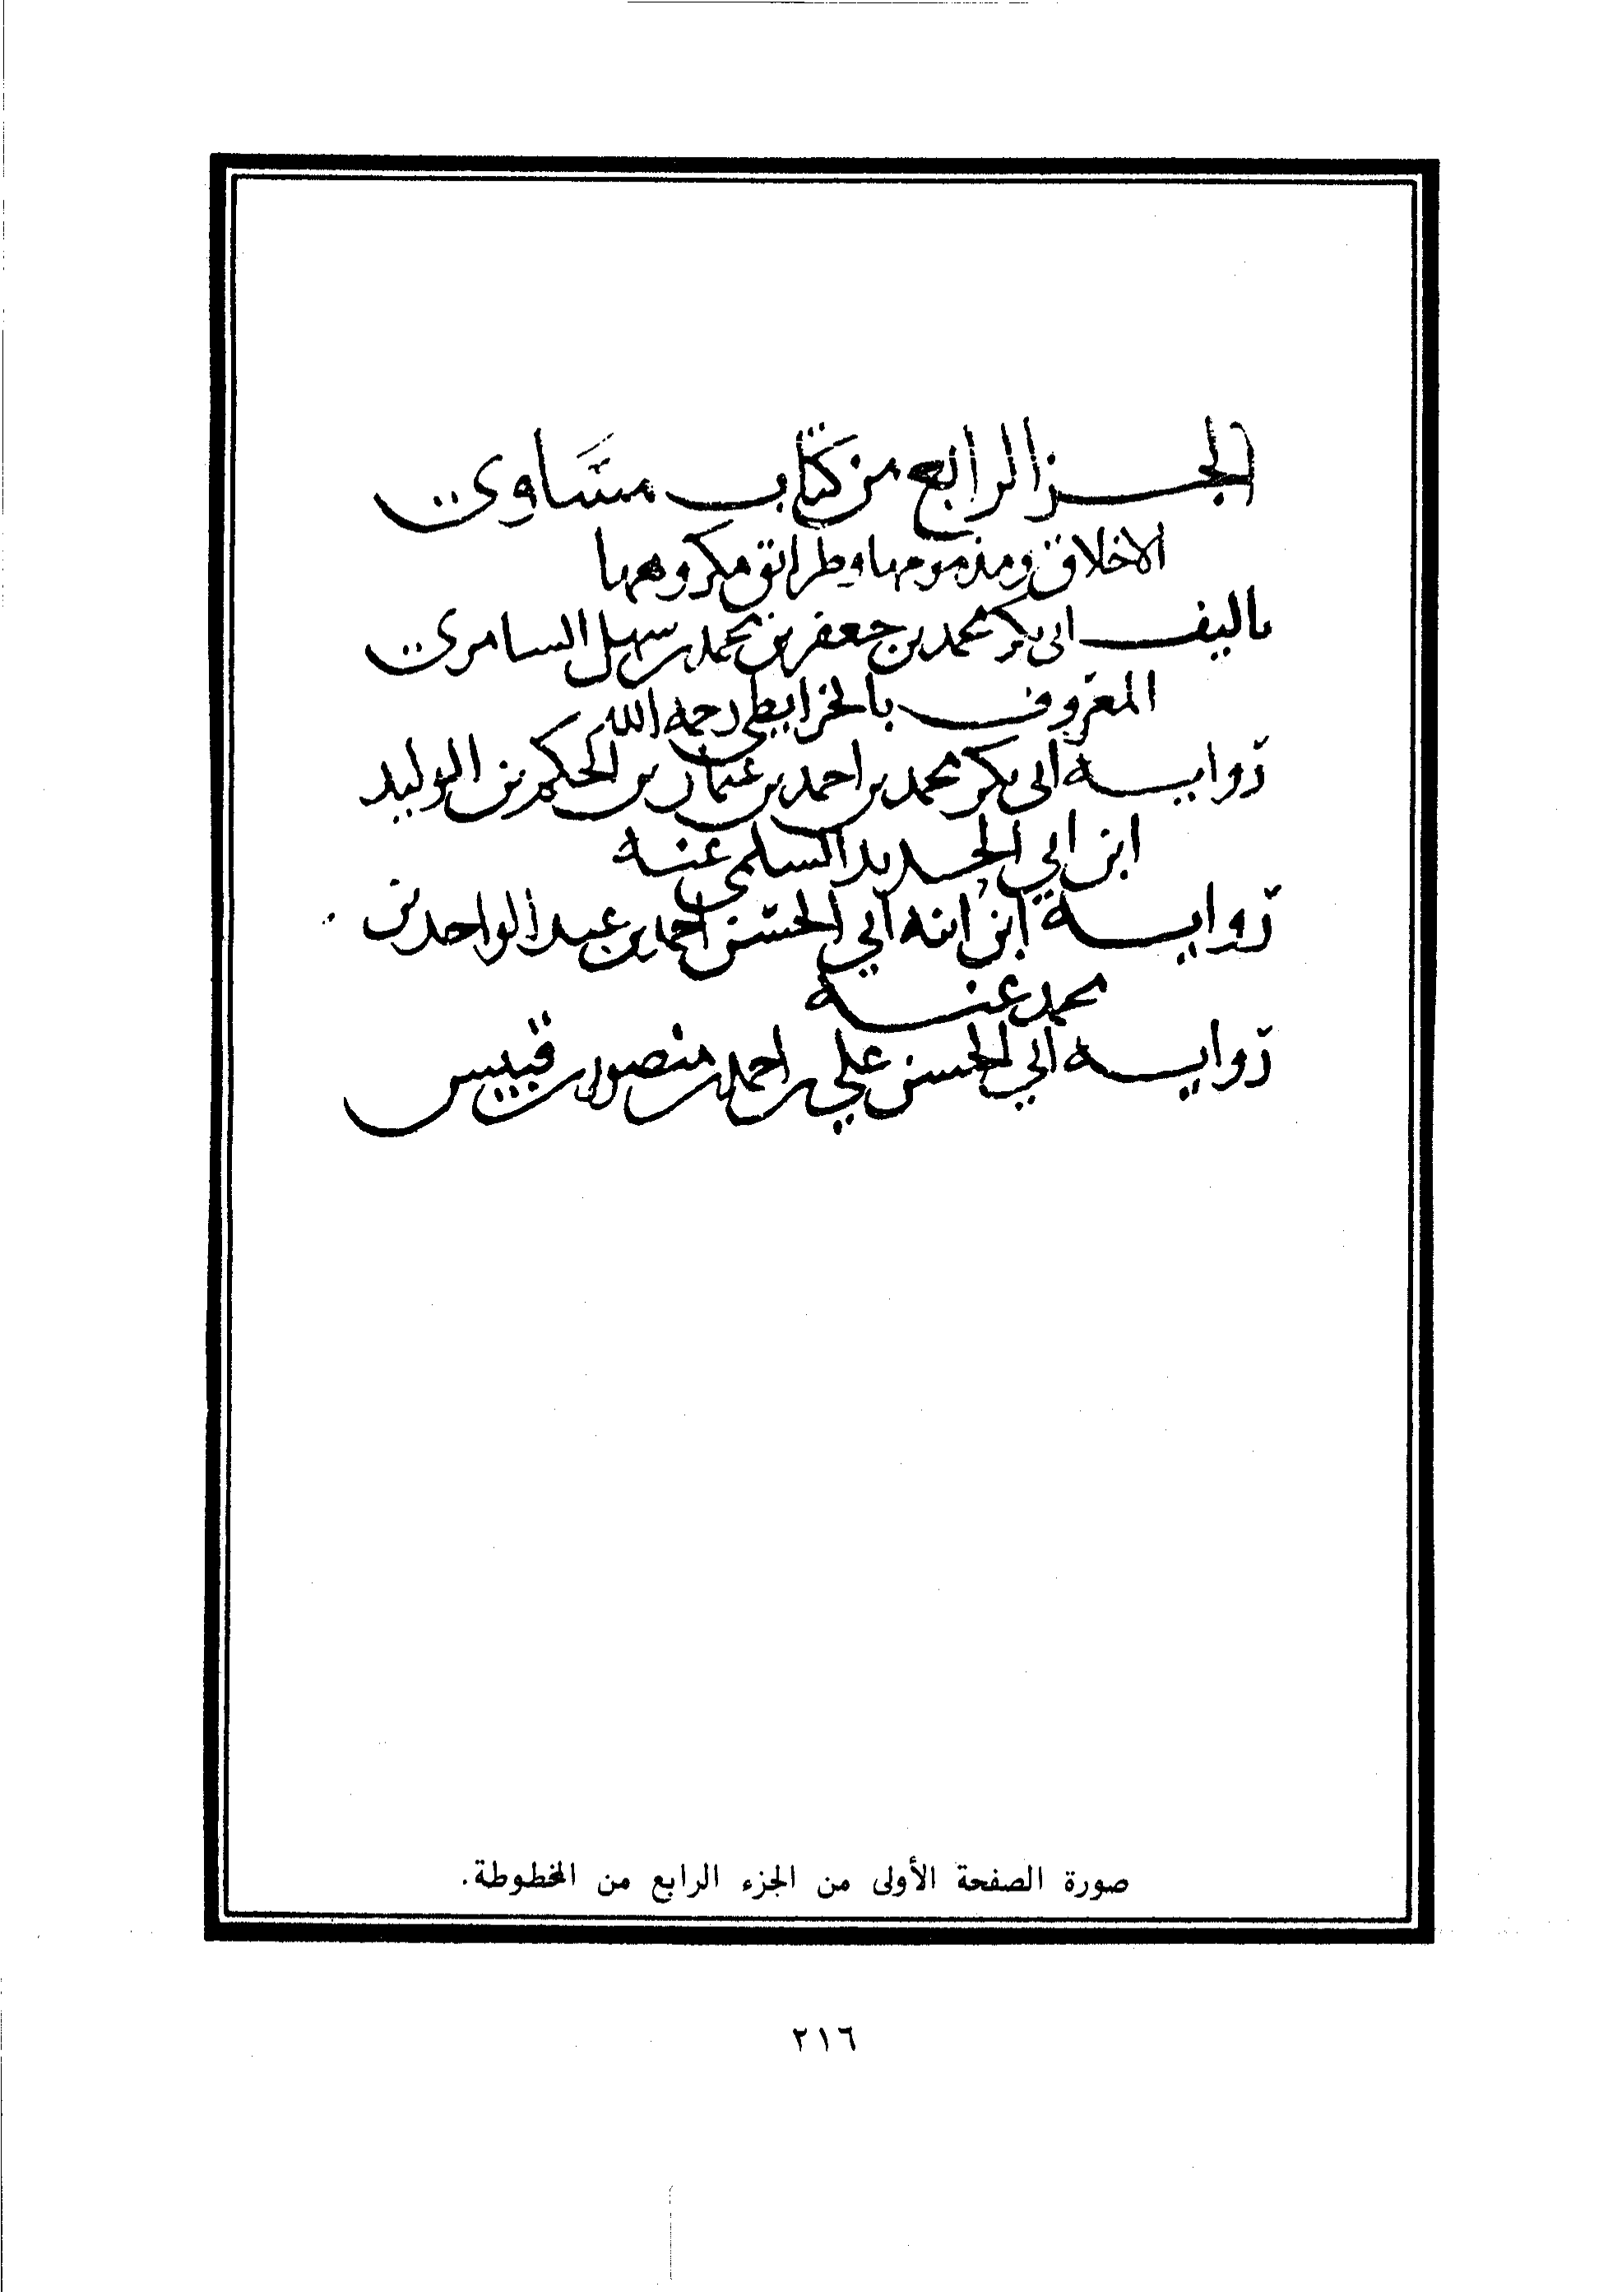 الجز الرابع من كتاب مساوى
الاخلاق ومذمومها وطرائق مكروهها
تاليف ابى بكر محمد بن جعفر بن محمد بن سهل السامرى
المعروف بالخرايطي رحمه الله
رواية ابى بكر محمد بن احمد بن عثمان بن الحكم بن الوليد
ابن ابي الحديد السلمي عنه
رواية ابن ابنه ابي الحسن احمد بن عبد الواحد بن
محمد عنه
رواية ابي الحسن علي بن احمد بن منصور بن قبيس
صورة الصفحة الأولى من الجزء الرابع من المخطوطة.
٢١٦